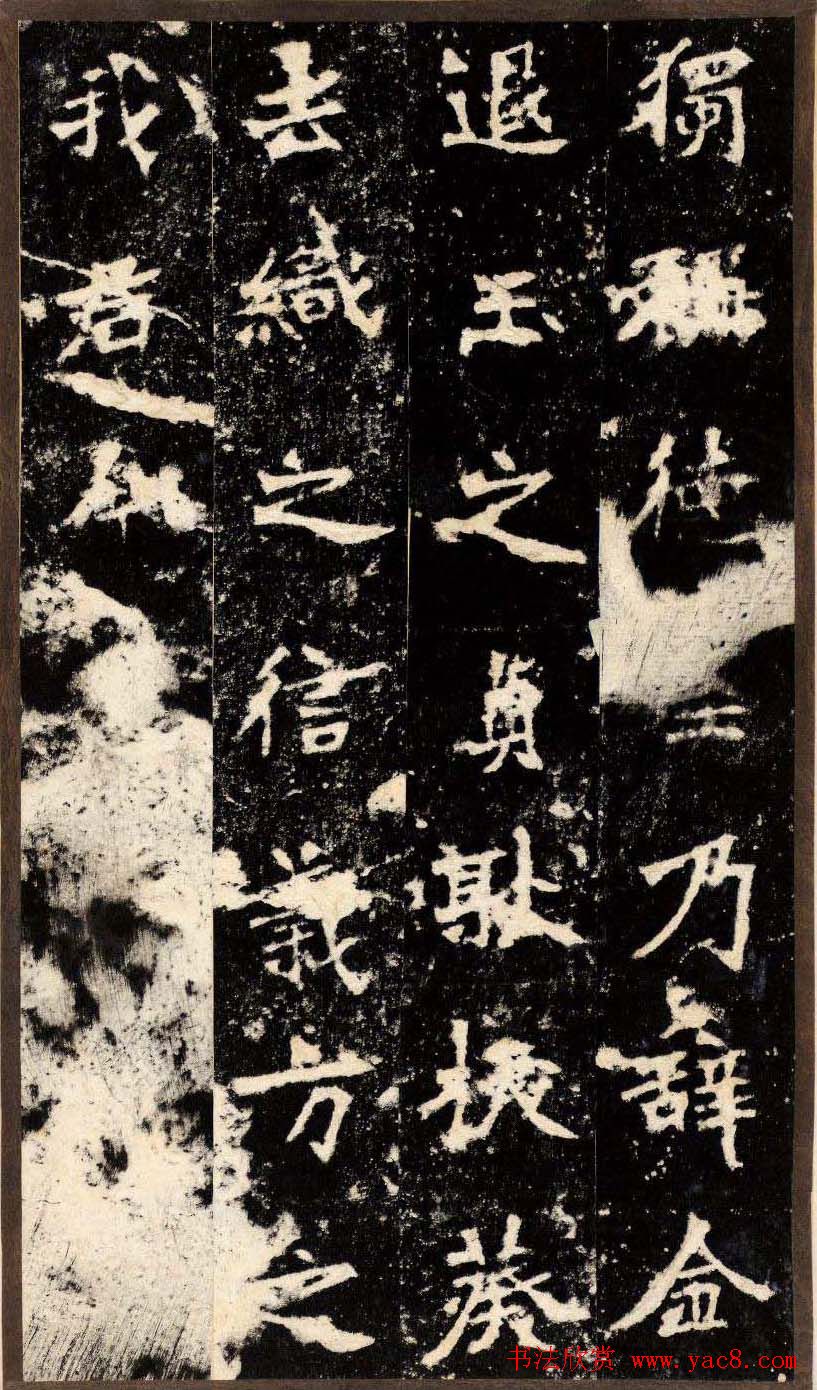 獨乃辭金
退玉之貞耻拔葵
去織之信義方之
我君
书法欣赏 www.yac8.com